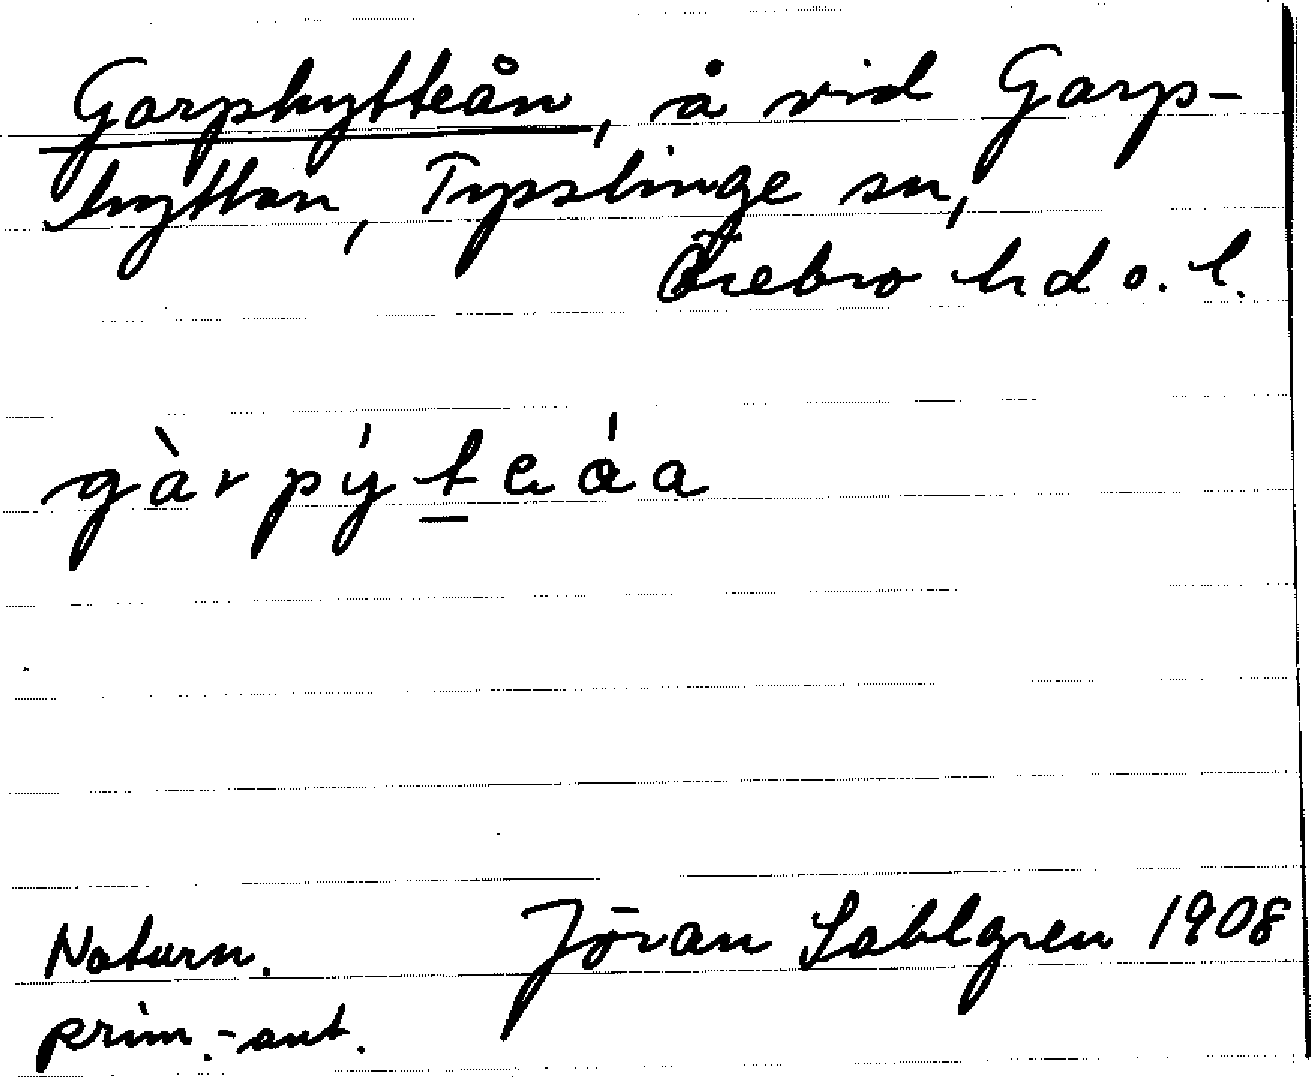 Garphytteån, å vid Garp-
hyttan, Tysslinge sn,
Örebro hd o. l.
gàrpýteáa
Naturn. Jöran Sahlgren 1908
prim.-ant.